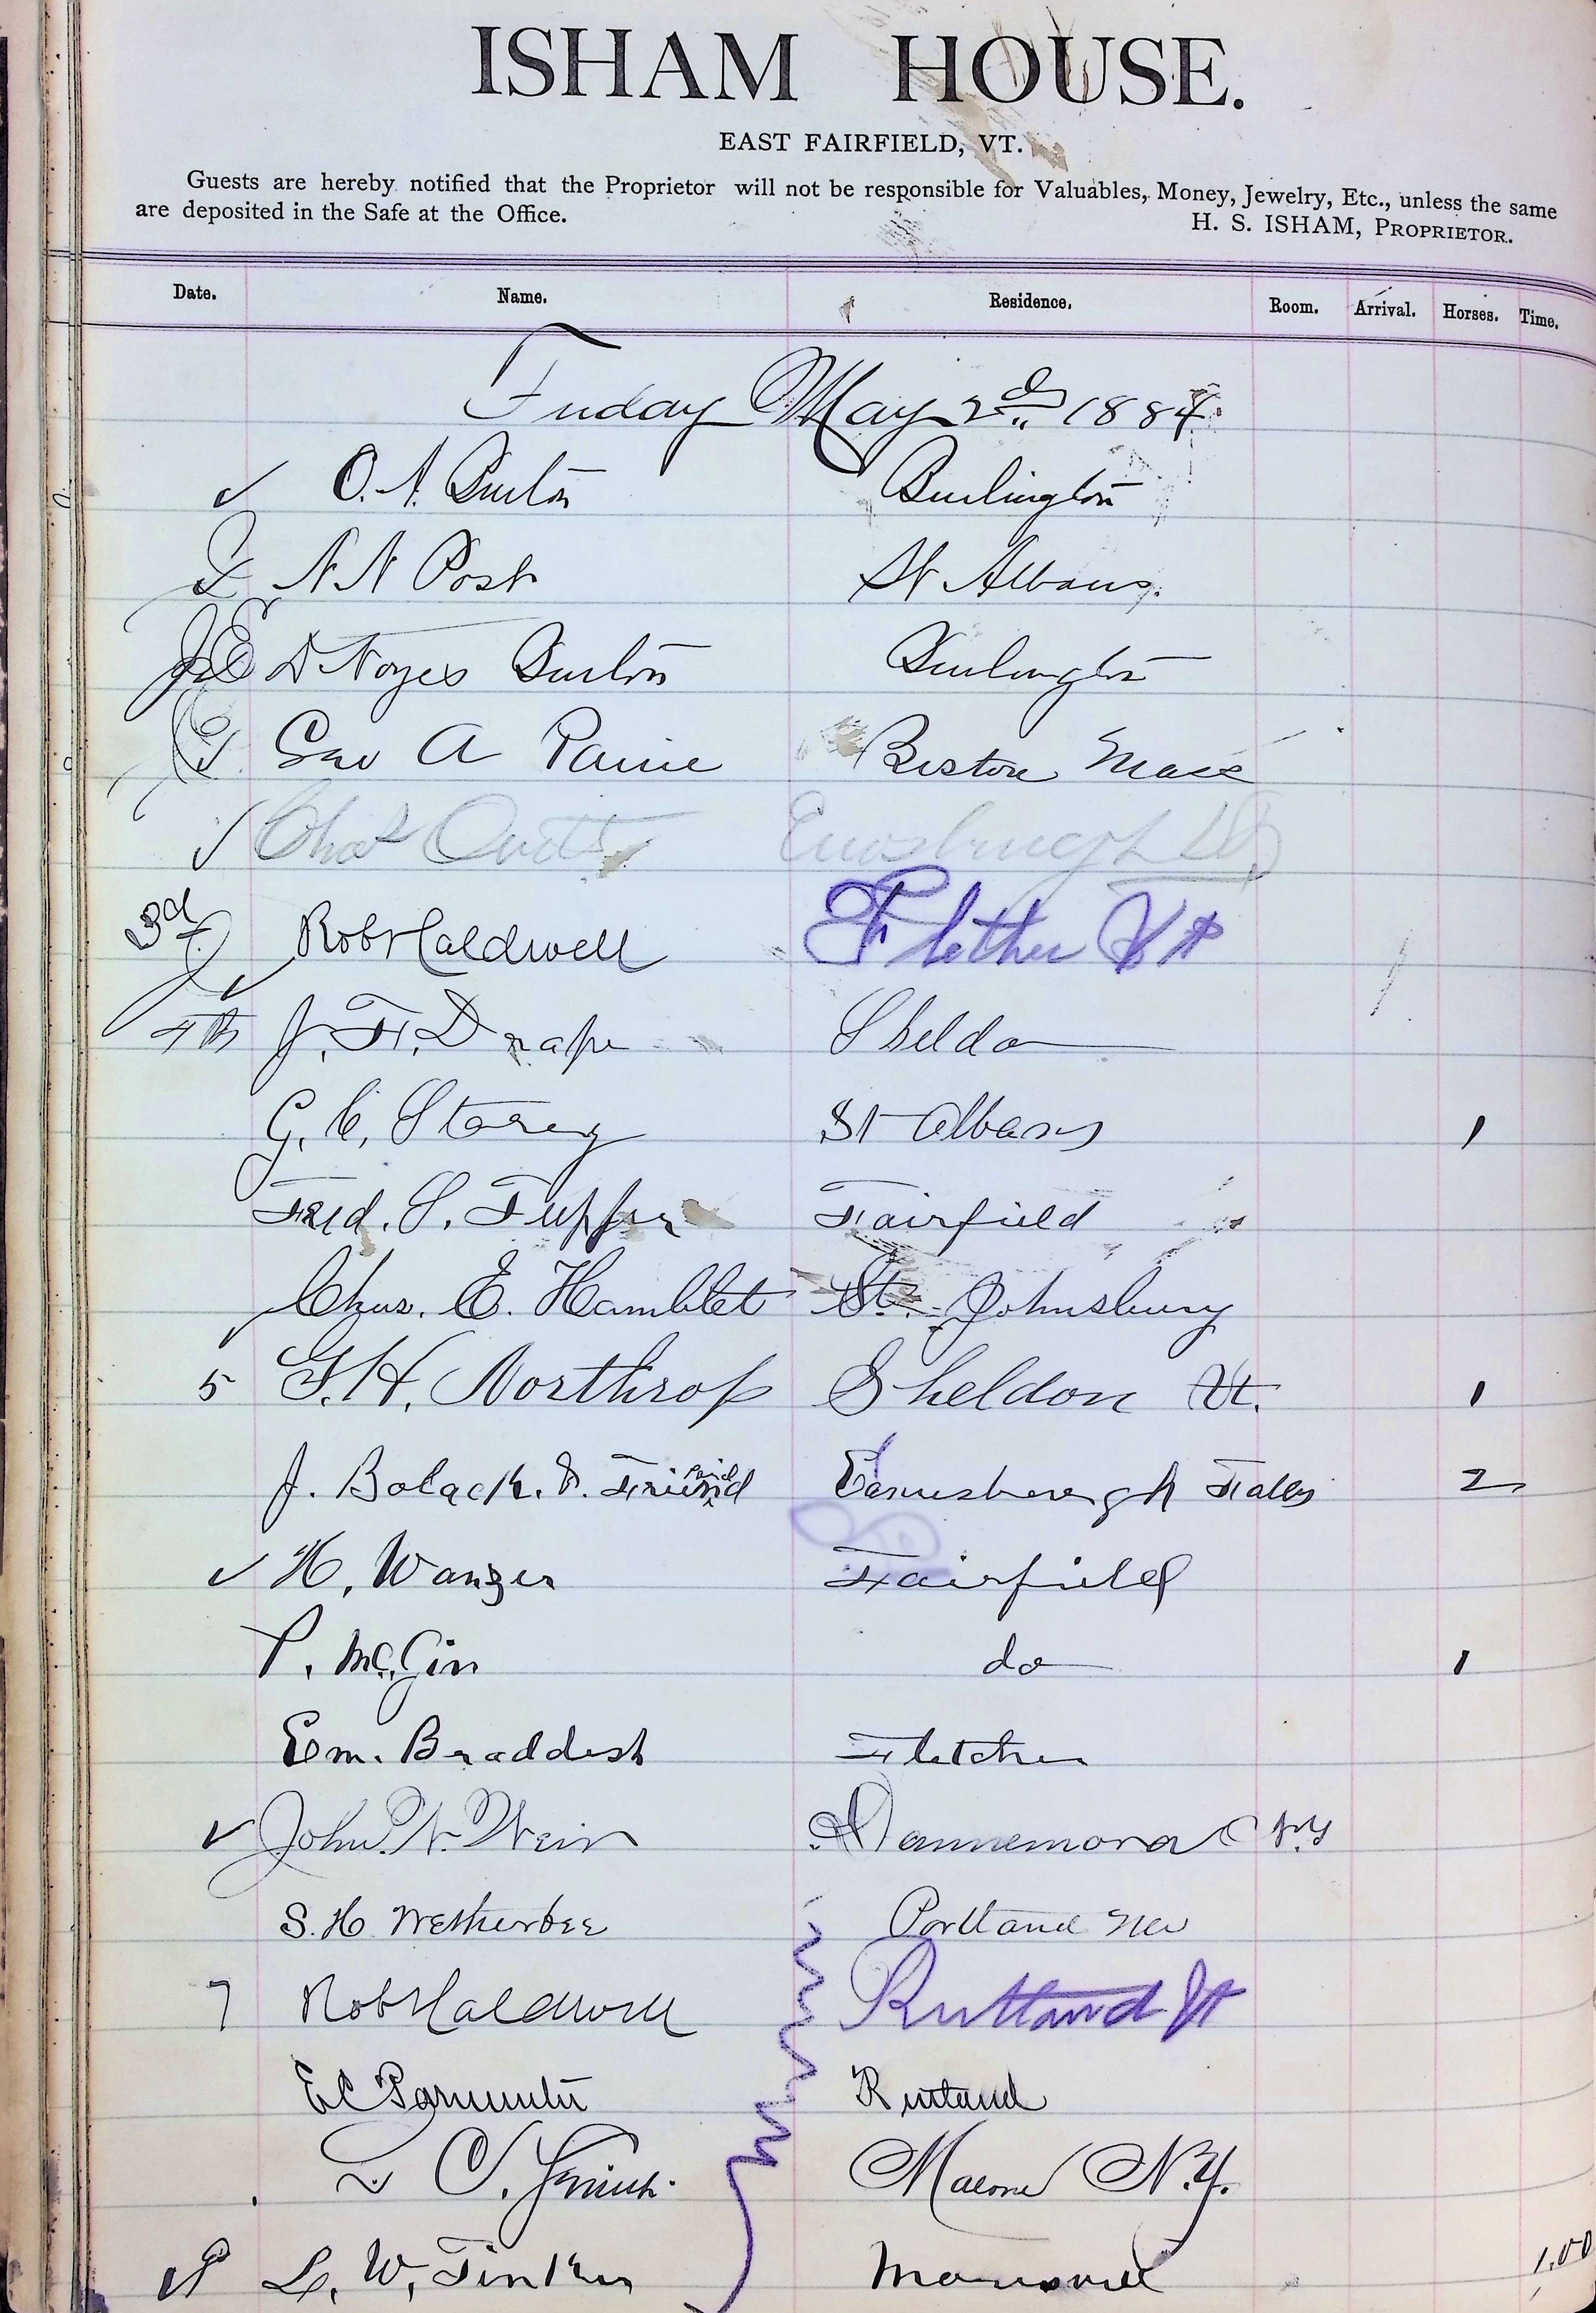 ISHAM HOUSE.
EAST FAIRFIELD, VT.
Guests are hereby notified that the Proprietor will not be responsible for Valuables, Money, Jewelry, Etc., unless the same
are deposited in the Safe at the Office.
H. S. ISHAM, PROPRIETOR.
Date. Name. Residence. Room. Arrival. Horses. Time.
Friday May 2nd 1884
✓ O. A. Burton Burlington
N N Post St Albans.
D Noyes Burton Burlington
Geo A Paine Boston Mass
✓ Chas Enosburgh
3d ✓ Robt Caldwell Fletcher Vt
4th J. F. Draper Sheldon
G. C. Storey St Albans 1
Fred. S. Tupper Fairfield
✓ Chas. E. Hamblet St. Johnsbury
5 G. H. Northrop Sheldon Vt. 1
J. Bolack. & Friend paid Falls 2
✓ H. Wanzer Fairfield
P. McGin do 1
Em. Braddish Fletcher
✓ John. N. Weir Dannemora N.Y
S. H Wetherbee Portland Me
7 Robt Caldwell Rutland Vt
E C Parmenter Rutland
Malone N.Y.
L. W. Tinker 1.00